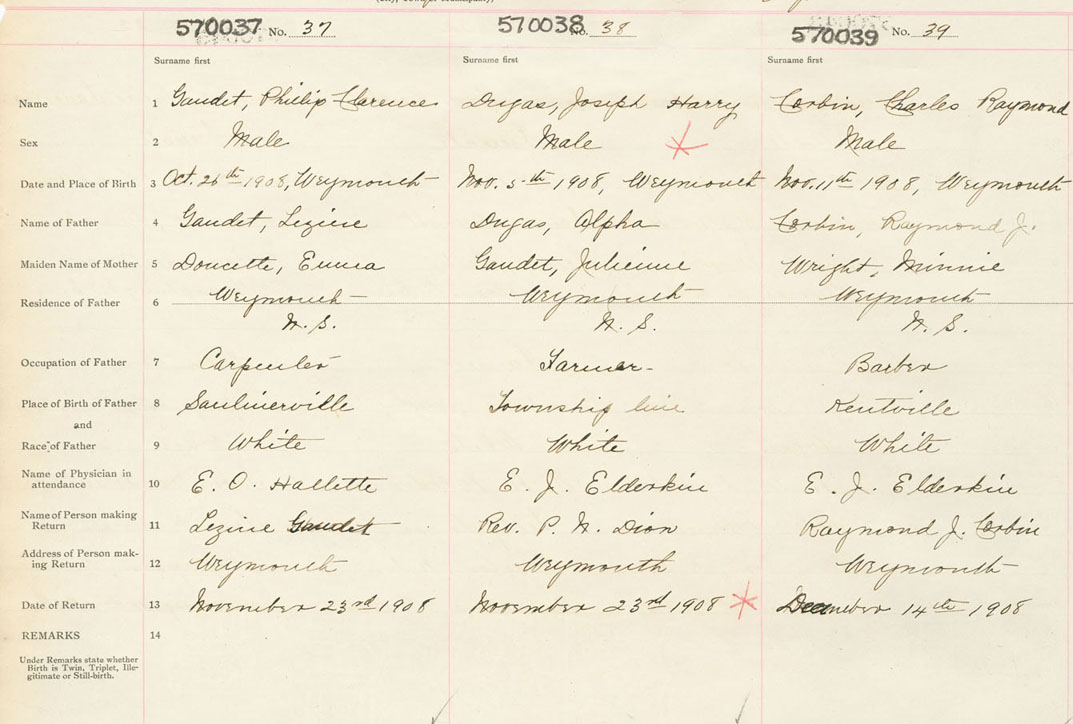 570037 No. 37 570038 No. 38 570039 No. 39
Surname first Surname first Surname first
Name 1 Gaudet, Phillip Clarence Dugas, Joseph Harry Corbin, Charles Raymond
Sex 2 Male Male Male
Date and Place of Birth 3 Oct. 26th 1908, Weymouth Nov. 5th 1908, Weymouth Nov. 11th 1908, Weymouth
Name of Father 4 Gaudet, Lezine Dugas, Alpha Corbin, Raymond J.
Maiden Name of Mother 5 Doucette, Emma Gaudet, Julienne Wright, Minnie
Residence of Father 6 Weymouth Weymouth Weymouth
N. S. N. S. N. S.
Occupation of Father 7 Carpenter Farmer Barber
Place of Birth of Father 8 Saulinerville Township line Kentville
and
Race of Father 9 White White White
Name of Physician in
attendance 10 E. O. Hallette E. J. Elderkin E. J. Elderkin
Name of Person making
Return 11 Lezine Gaudet Rev. P. N. Dion Raymond J. Corbin
Address of Person mak-
ing Return 12 Weymouth Weymouth Weymouth
Date of Return 13 November 23rd 1908 November 23rd 1908 December 14th 1908
REMARKS 14
Under Remarks state whether
Birth is Twin, Triplet, Ille-
gitimate or Still-birth.